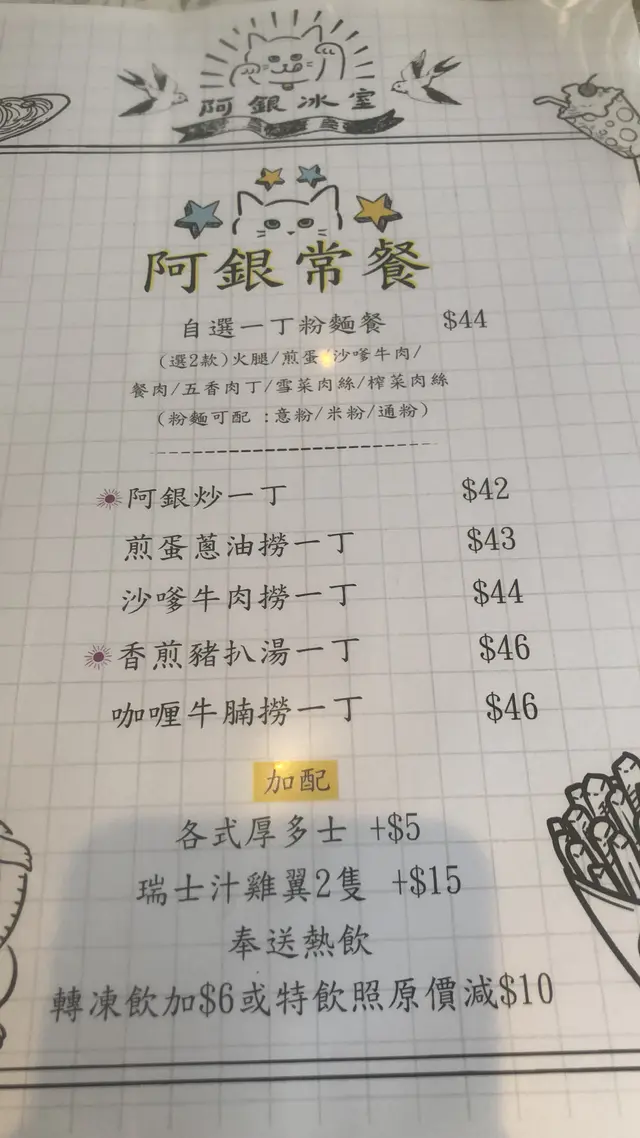 阿銀冰室
阿銀常餐
自選一丁粉麵餐 $44
(選2款)火腿/煎蛋/沙嗲牛肉/
餐肉/五香肉丁/雪菜肉絲/榨菜肉絲
(粉麵可配:意粉/米粉/通粉)
阿銀炒一丁 $42
煎蛋蔥油撈一丁 $43
沙嗲牛肉撈一丁 $44
香煎豬扒湯一丁 $46
咖喱牛腩撈一丁 $46
加配
各式厚多士 +$5
瑞士汁雞翼2隻 +$15
奉送熱飲
轉凍飲加$6或特飲照原價減$10